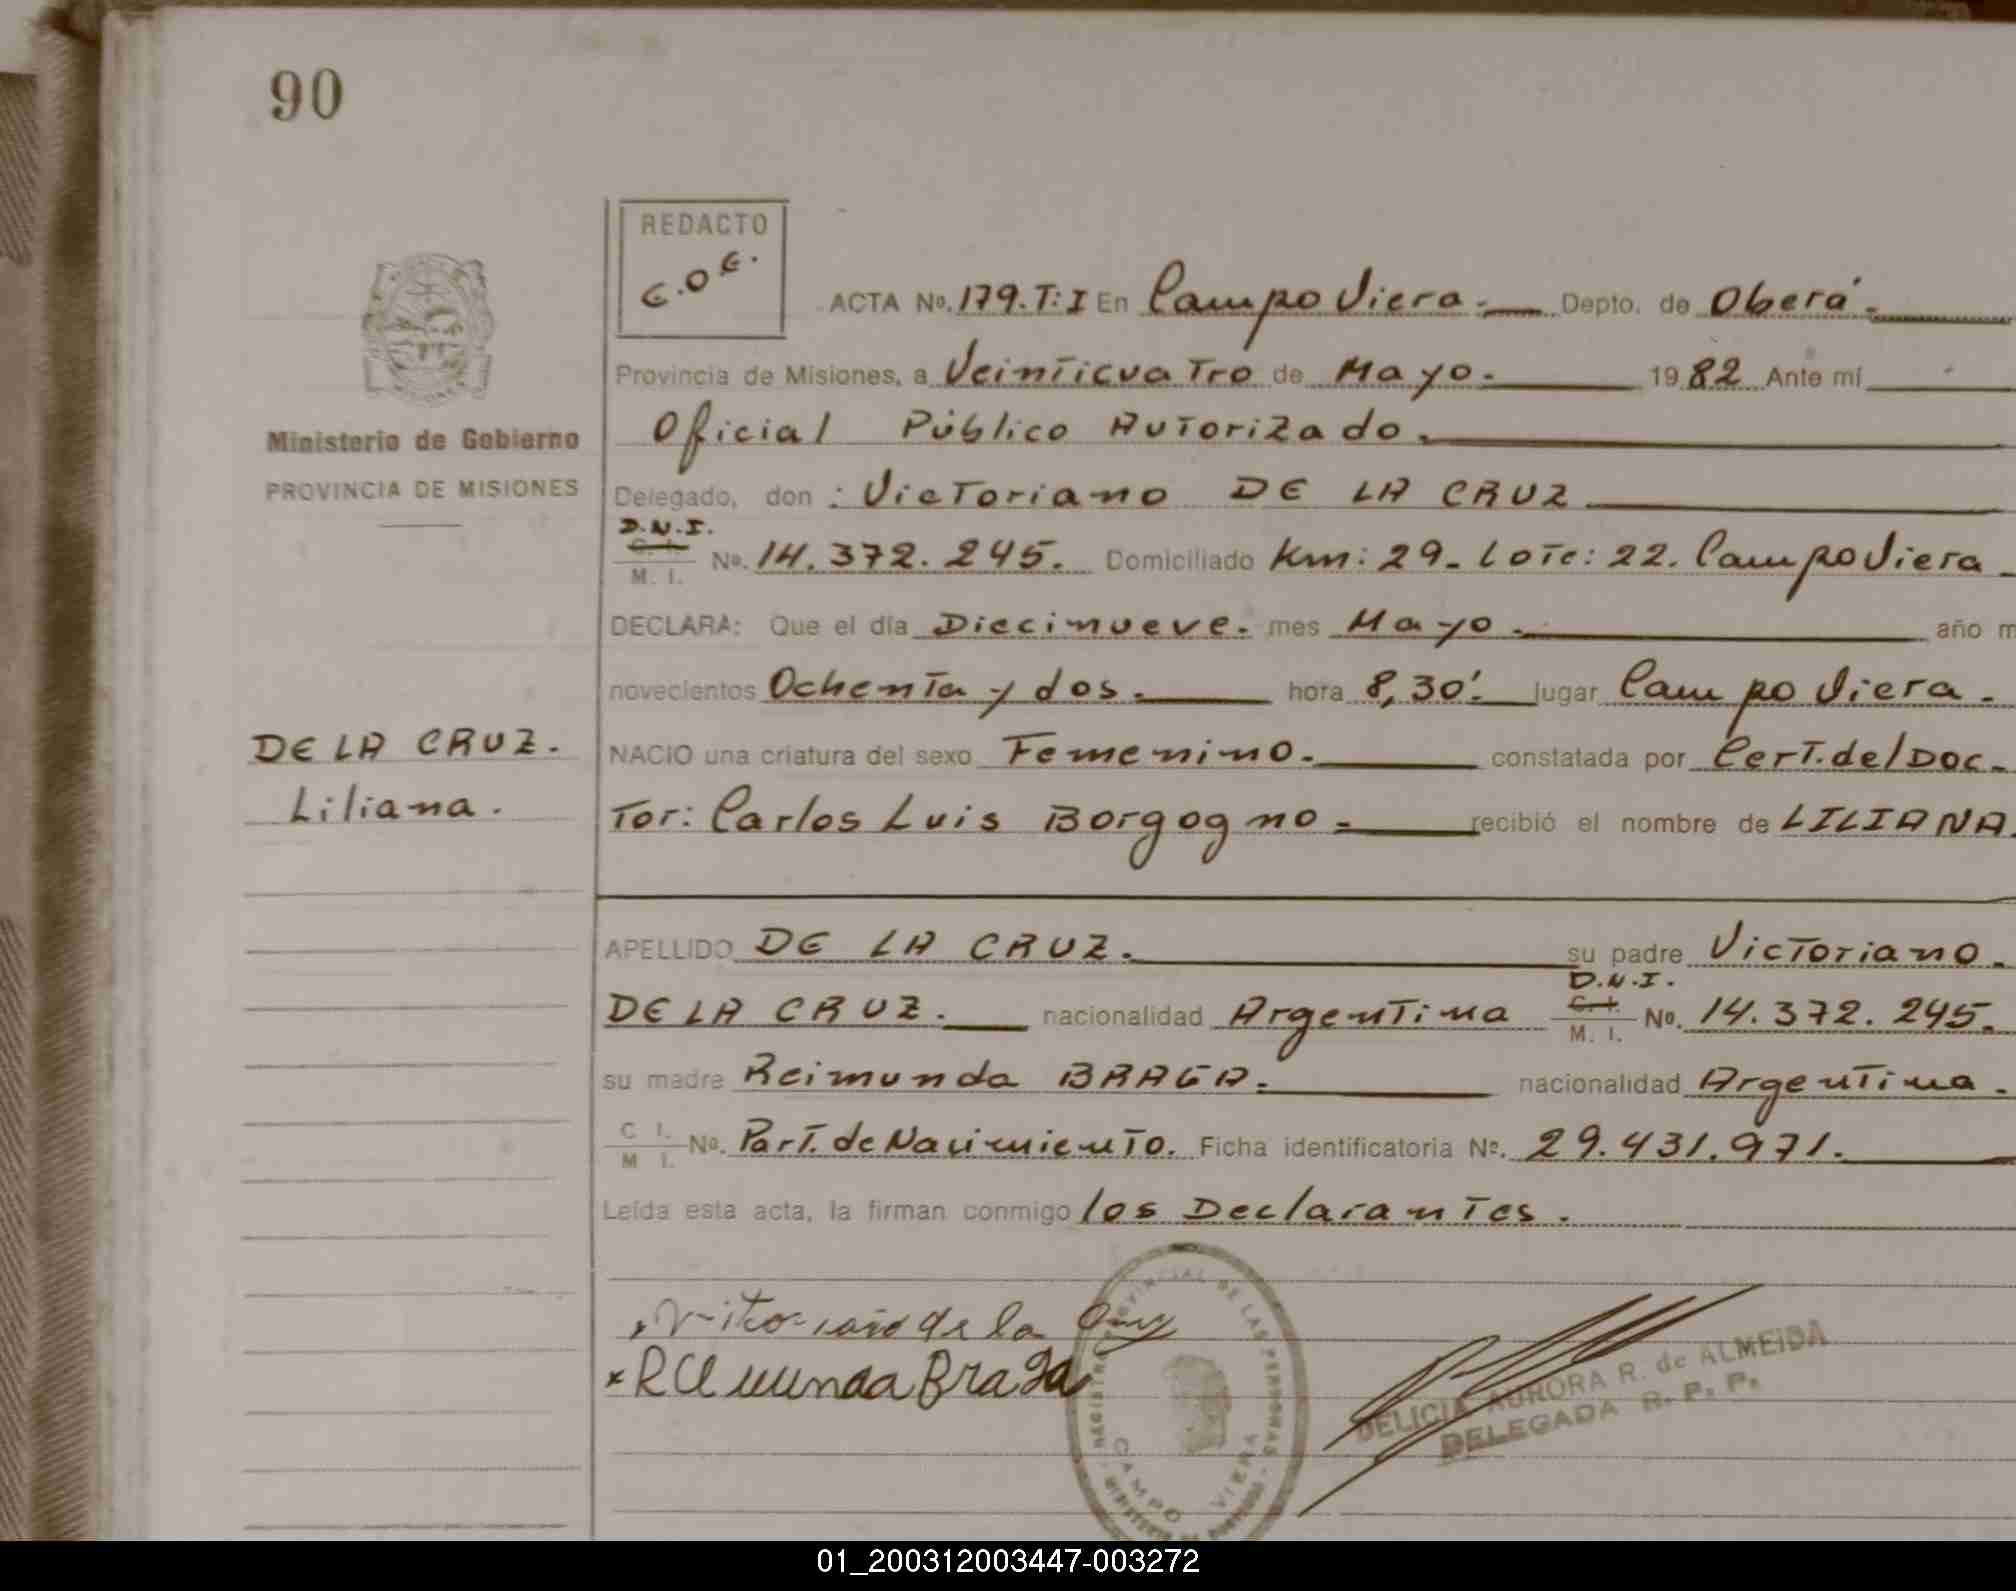 90
REDACTO
C.O.E.
ACTA Nº. 179.T:I En Campo Viera.- Depto. de Oberá.-
Provincia de Misiones, a Veinticuatro de Mayo.- 1982 Ante mí
Oficial Público Autorizado.
Ministerio de Gobierno
PROVINCIA DE MISIONES
Delegado, don : Victoriano DE LA CRUZ
D.N.I.
C. I.
M. I. Nº. 14.372.245. Domiciliado Km: 29. Lote: 22. Campo Viera
DECLARA: Que el día Diecinueve. mes Mayo.- año m
novecientos Ochenta y dos.- hora 8,30'.- lugar Campo Viera.
DE LA CRUZ.
Liliana.
NACIO una criatura del sexo Femenino.- constatada por Cert. del Doc-
tor: Carlos Luis Borgogno.- recibió el nombre de LILIANA.
APELLIDO DE LA CRUZ.- su padre Victoriano.
DE LA CRUZ.- nacionalidad Argentina D.N.I. C. I. M. I. Nº. 14.372.245.
su madre Reimunda BRAGA.- nacionalidad Argentina.
C I. M I. Nº. Part. de Nacimiento. Ficha identificatoria Nº. 29.431.971.
Leída esta acta, la firman conmigo los Declarantes.
de la
Braga
REGISTRO PROVINCIAL DE LAS PERSONAS
CAMPO VIERA
DELICIA AURORA R. de ALMEIDA
DELEGADA R. P. P.
01_200312003447-003272